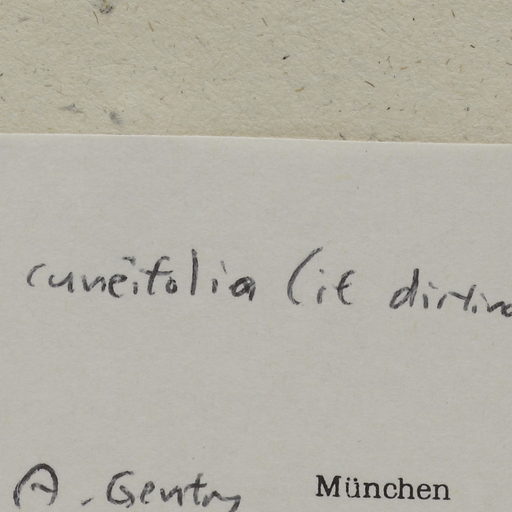 cuneifolia (if distinc
A. Gentry München